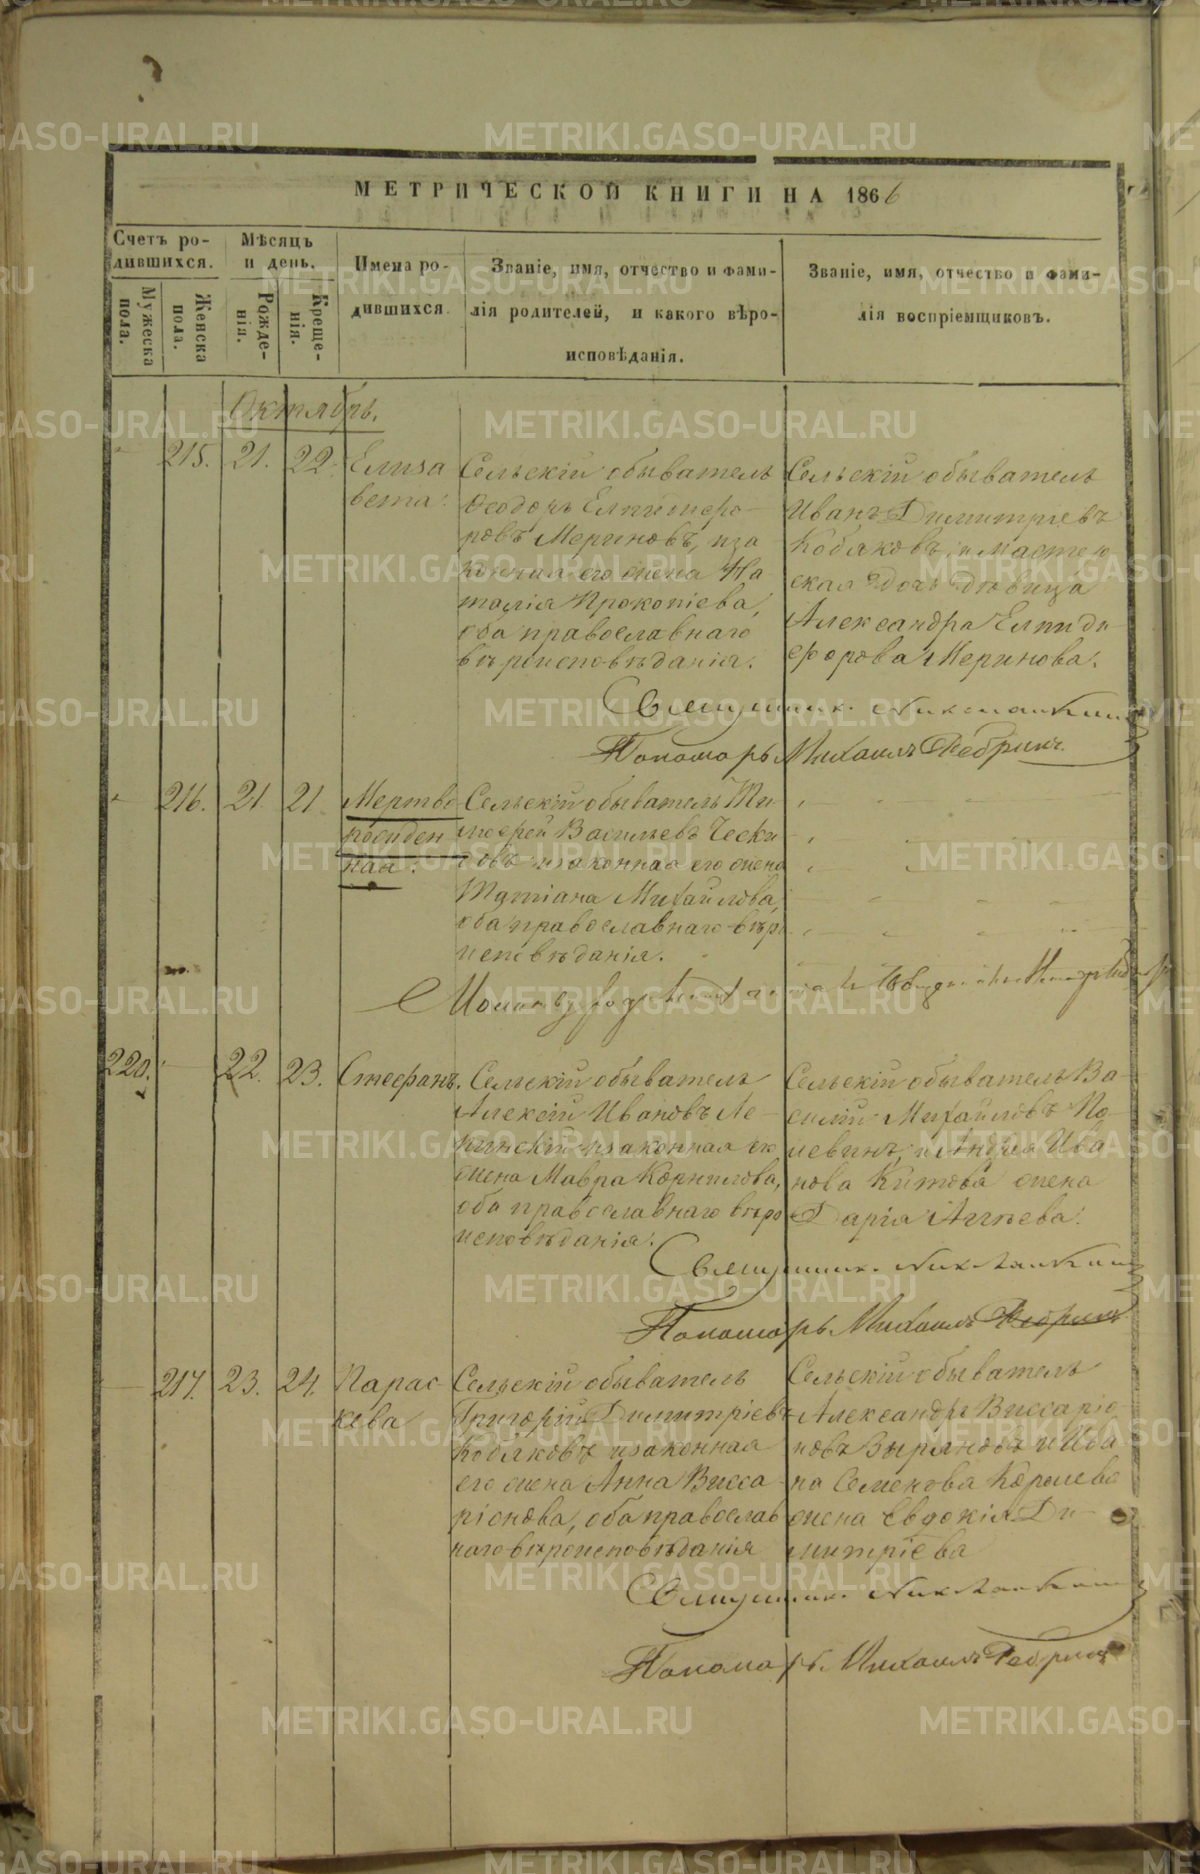 МЕТРИЧЕСКОЙ КНИГИ НА 1866
Счетъ ро-
дившихся.
Мужеска
пола.
Женска
пола.
Мѣсяцъ
и день.
Рожде-
нія.
Креще-
нія.
Имена ро-
дившихся.
Званіе, имя, отчество и фами-
лія родителей, и какого вѣро-
исповѣданія.
Званіе, имя, отчество и фами-
лія воспріемщиковъ.
Октябрь.
215. 21. 22. Елиза
вета.
Сельскій обыватель
Ѳеодоръ Елпидифо-
ровъ Мериновъ, и за
конная его жена На
талія Прокопіева,
оба православнаго
вѣроисповѣданія.
Сельскій обыватель
Иванъ Димитріевъ
Кобяковъ, и
дочь дѣвица
Александра Елпиди
форова Меринова.
Священник
Пономарь Михаилъ Ребринъ.
216. 21 21 Мертво
рожден
ная.
Сельскій обыватель Ти
моѳей Васильевъ
и законная его жена
Татіана Михайлова,
оба православнаго вѣро
исповѣданія.
220. 22. 23. Стефанъ.
Сельскій обыватель
Алексій Ивановъ Ле-
пинскій и законная его
жена Мавра Корнилова,
оба православнаго вѣро
исповѣданія.
Сельскій обыватель Ва-
силій Михайловъ По-
левинъ, и Андрея Ива
нова Китова жена
Дарія
Священник
Пономарь Михаилъ Ребринъ
217. 23. 24. Парас-
кева
Сельскій обыватель
Григорій Димитріевъ
Кобяковъ и законная
его жена Анна Висса
ріонова, оба православ
наго вѣроисповѣданія
Сельскій обыватель
Александръ Виссаріо
новъ Зыряновъ и Ива
на Семенова Королева
жена Евдокія Ди-
митріева
Священник
Пономарь Михаилъ Ребринъ
METRIKI.GASO-URAL.RU